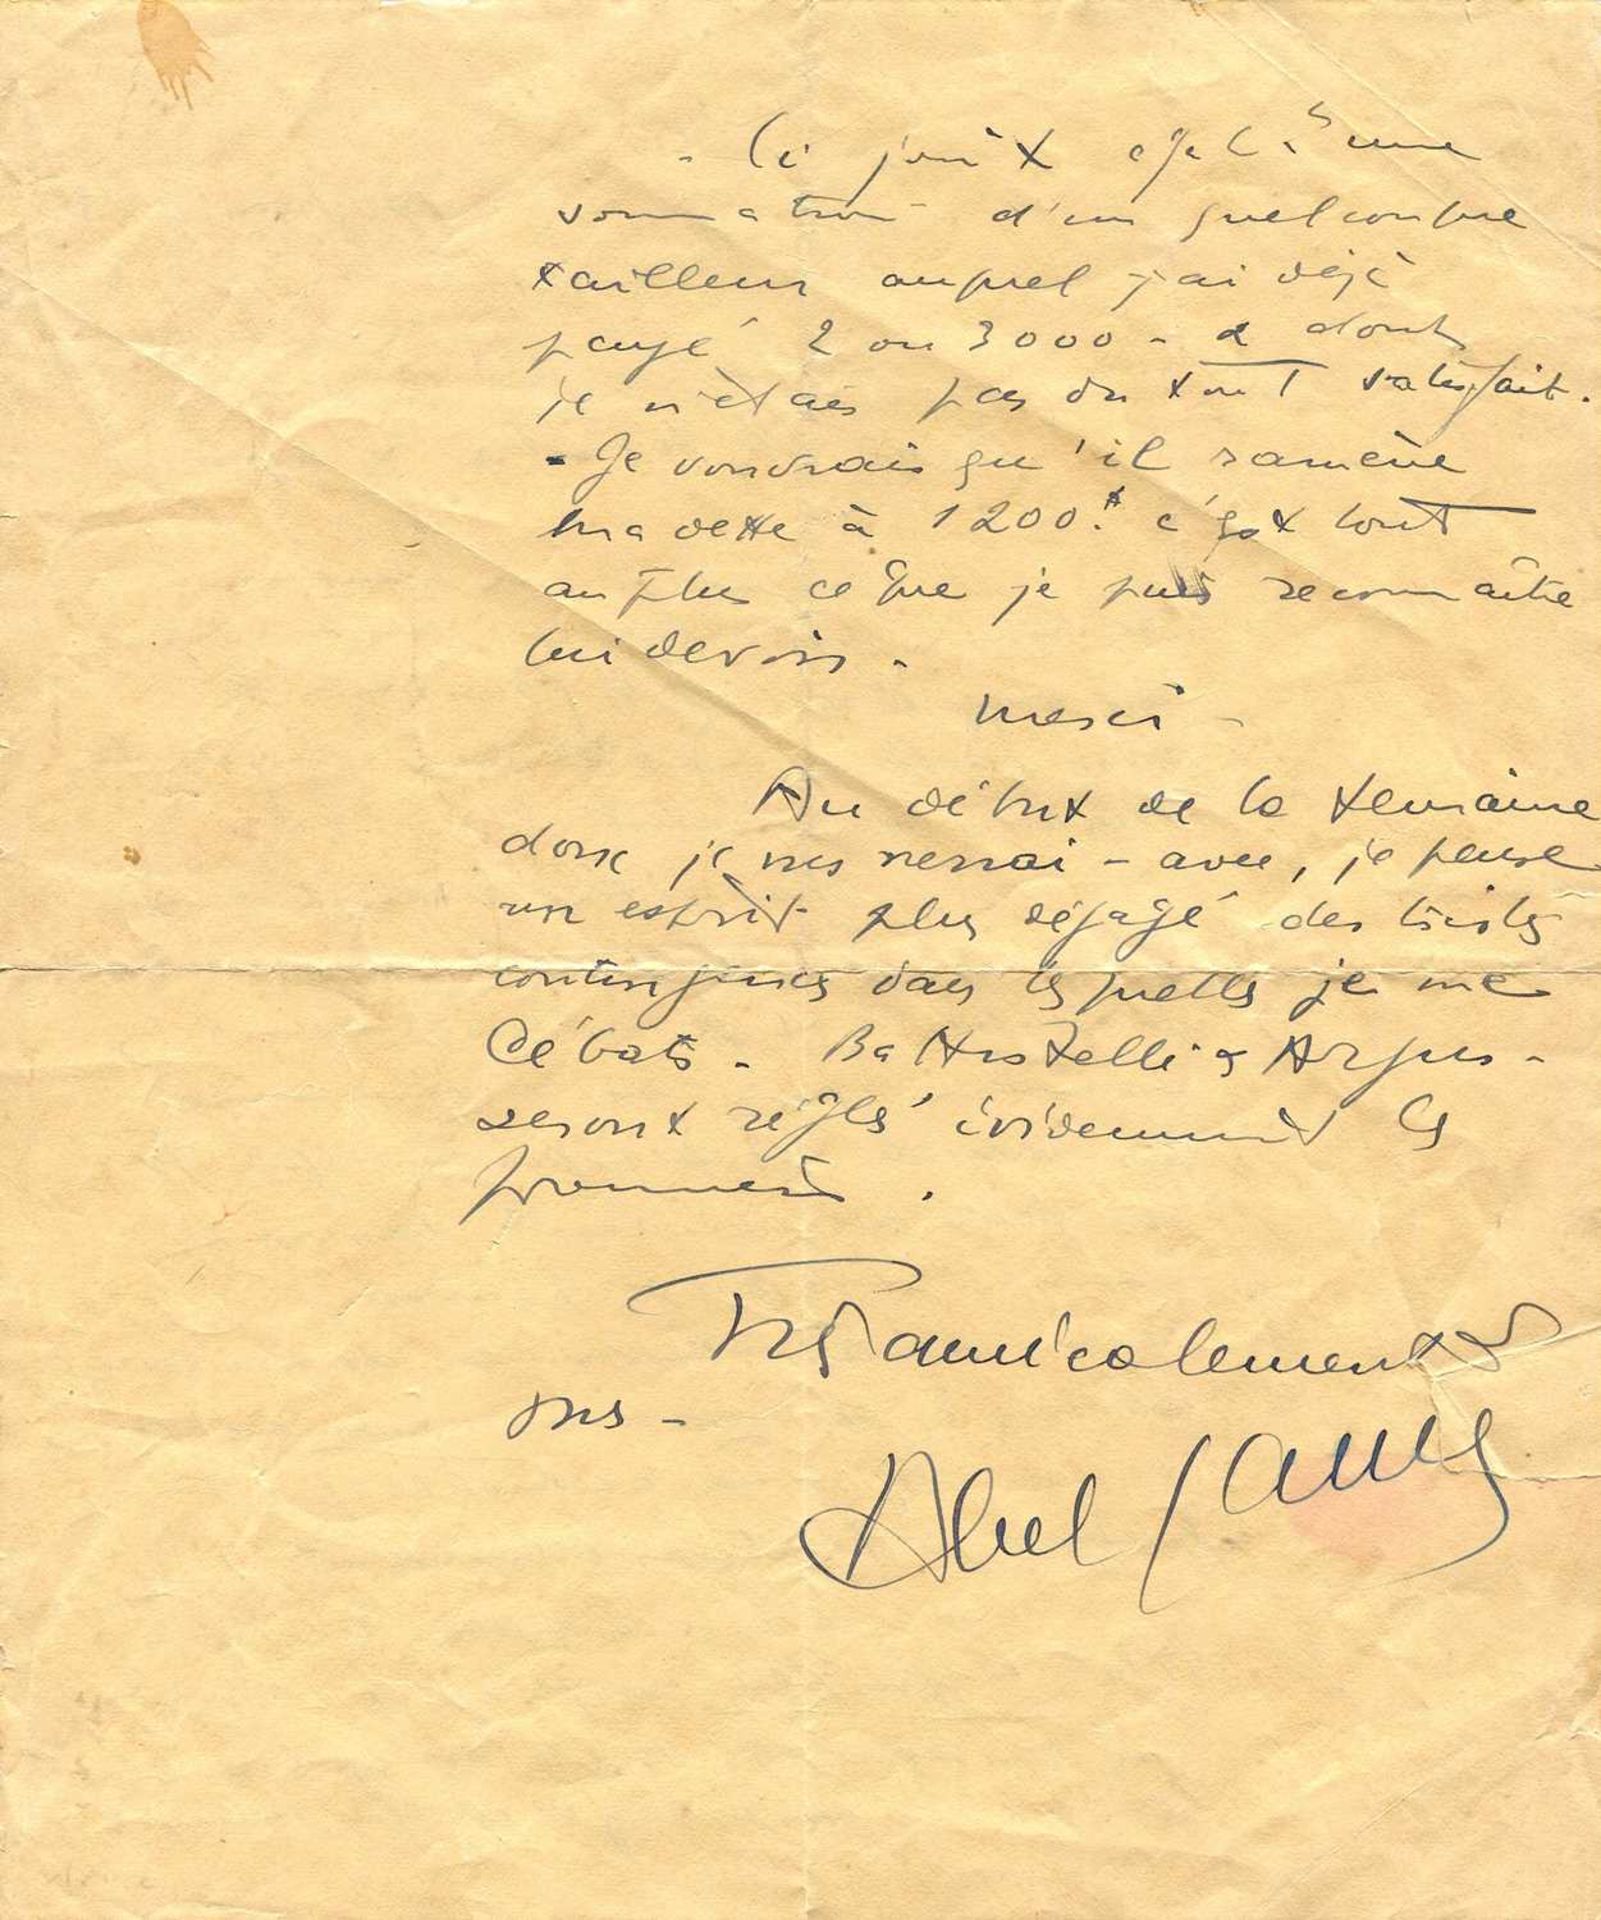 - Ci joint egalt une
sommation d'un quelconque
tailleur auquel j'ai déjà
payé 2 ou 3000 - & dont
je n'étais pas du tout satisfait.
- Je voudrais qu'il ramène
ma dette à 1200. c'est tout
au plus ce que je puis reconnaître
lui devoir -
Merci -
Au début de la semaine
donc je vous verrai - avec, je pense
un esprit plus dégagé des tristes
contingences dans lesquelles je me
débats - Battistelli & Argus -
seront réglés évidemment les
premiers.
Très amicalement à
vous -
Abel Gance